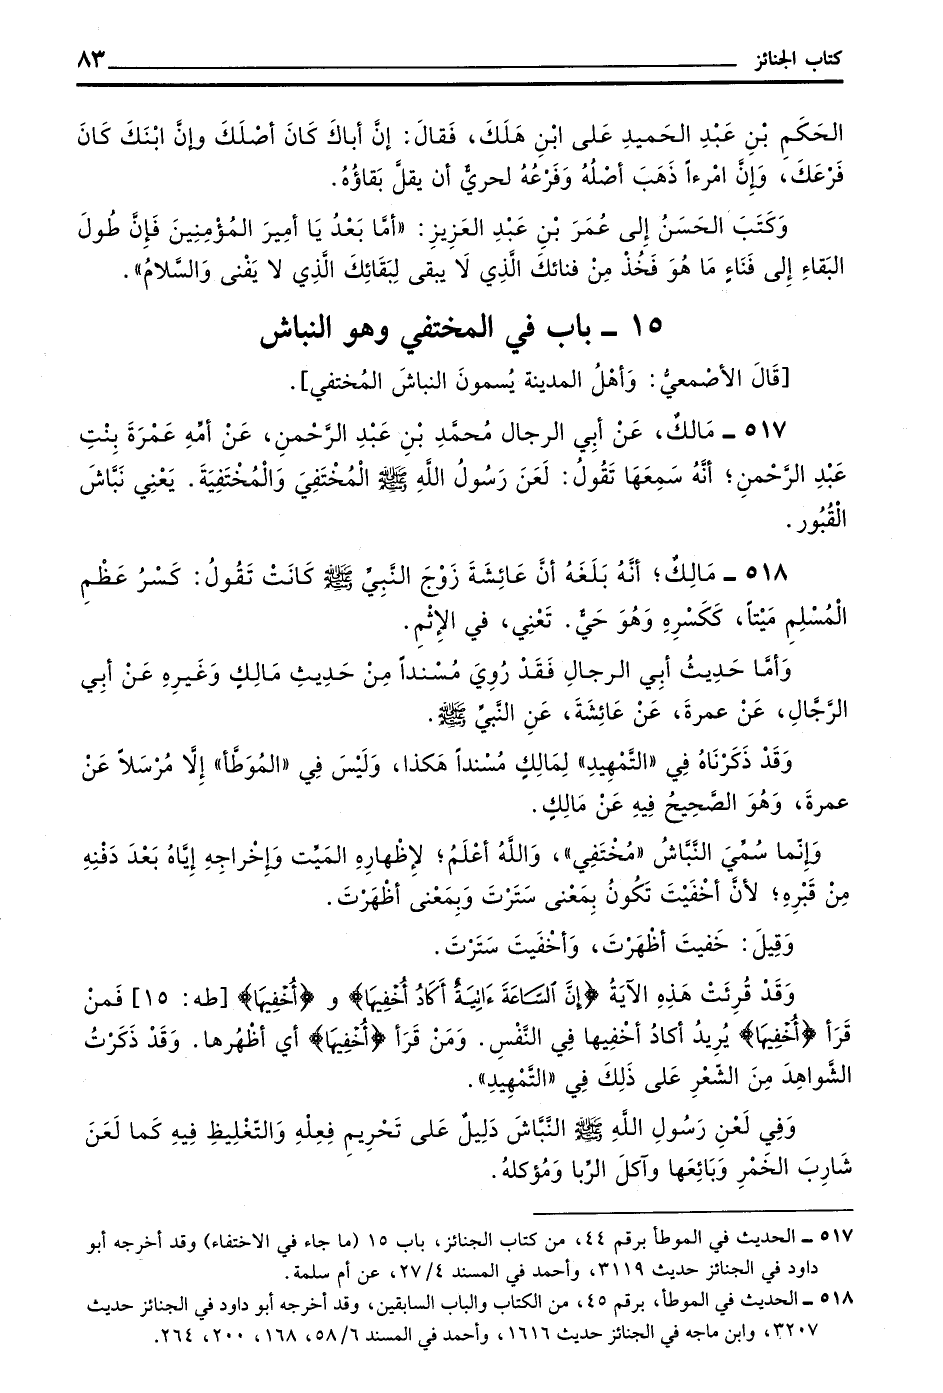 كتاب الجنائز ٨٣
الحَكَمِ بْنِ عَبْدِ الحَميدِ عَلى ابْنٍ هَلَكَ، فَقالَ: إنَّ أباكَ كَانَ أصْلَكَ وإنَّ ابْنَكَ كَانَ
فَرْعَكَ، وَإنَّ امْرءاً ذَهَبَ أصْلُهُ وَفَرْعُهُ لحريٌّ أن يقلَّ بَقاؤُهُ.
وَكَتَبَ الحَسَنُ إلى عُمَرَ بْنِ عَبْدِ العَزِيزِ: «أمَّا بَعْدُ يَا أمِيرَ المُؤْمِنِينَ فَإنَّ طُولَ
البَقاءِ إلى فَنَاءٍ مَا هُوَ فَخُذْ مِنْ فنائكَ الَّذِي لَا يبقى لِبَقَائِكَ الَّذِي لا يَفْنى وَالسَّلامُ».
١٥ ـ باب في المختفي وهو النباش
[قَالَ الأصْمعيُّ: وَأهْلُ المدينة يُسمونَ النباشَ المُختفي].
٥١٧ ـ مَالكٌ، عَنْ أبي الرجال مُحمَّدِ بْنِ عَبْدِ الرَّحْمنِ، عَنْ أمِّهِ عَمْرَةَ بِنْتِ
عَبْدِ الرَّحْمنِ؛ أنَّهُ سَمِعَهَا تَقُولُ: لَعَنَ رَسُولُ اللَّهِ ﷺ الْمُخْتَفِيَ وَالْمُخْتَفِيَةَ. يَعْنِي نَبَّاشَ
الْقُبُور.
٥١٨ ـ مَالِكٌ؛ أنَّهُ بَلَغَهُ أنَّ عَائِشَةَ زَوْجَ النَّبِيِّ ﷺ كَانَتْ تَقُولُ: كَسْرُ عَظْمِ
الْمُسْلِمِ مَيْتاً، كَكَسْرِهِ وَهُوَ حَيٌّ. تَعْنِي، في الإثْمِ.
وَأمَّا حَدِيثُ أبي الرجالِ فَقَدْ رُوِيَ مُسْنداً مِنْ حَدِيثِ مَالِكٍ وَغَيرِهِ عَنْ أبي
الرَّجَّالِ، عَنْ عمرةَ، عَنْ عَائِشَةَ، عَنِ النَّبِيِّ ﷺ.
وَقَدْ ذَكَرْنَاهُ فِي «التَّمْهِيدِ» لِمَالِكٍ مُسْنداً هَكذا، وَلَيْسَ فِي «المُوَطَّأ» إلَّا مُرْسَلاً عَنْ
عمرةَ، وَهُوَ الصَّحِيحُ فِيهِ عَنْ مَالِكٍ.
وَإنَّما سُمِّيَ النَّبَّاشُ «مُخْتَفِي»، وَاللَّهُ أعْلَمُ؛ لإظْهارِهِ المَيِّت وَإخْراجِهِ إيَّاهُ بَعْدَ دَفْنِهِ
مِنْ قَبْرِهِ؛ لأنَّ أخْفَيْتَ تَكُونُ بِمَعْنى سَتَرْتَ وَبِمَعْنى أظْهَرْتَ.
وَقِيلَ: خَفيتَ أظْهَرْتَ، وَأخْفَيتَ سَتَرْتَ.
وَقَدْ قُرِئَتْ هَذِهِ الآيَةُ ﴿إِنَّ ٱلسَّاعَةَ ءَاتِيَةٌ أَكَادُ أُخْفِيهَا﴾ و ﴿أُخْفِيهَا﴾ [طه: ١٥] فَمنْ
قَرَأ ﴿أُخْفِيهَا﴾ يُرِيدُ أكادُ أخْفِيها فِي النَّفْسِ. وَمَنْ قَرَأ ﴿أُخْفِيهَا﴾ أي أظْهُرها. وَقَدْ ذَكَرْتُ
الشَّواهِدَ مِنَ الشِّعْرِ عَلى ذَلِكَ فِي «التَّمْهِيدِ».
وَفِي لَعْنِ رَسُولِ اللَّهِ ﷺ النَّبَّاشَ دَلِيلٌ عَلى تَحْرِيمِ فِعلِهِ وَالتّغْلِيظِ فِيهِ كَما لَعَنَ
شَارِبَ الخَمْرِ وَبَائِعَها وآكلَ الرِّبا وَمُؤكلهُ.
٥١٧ ـ الحديث في الموطأ برقم ٤٤، من كتاب الجنائز، باب ١٥ (ما جاء في الاختفاء) وقد أخرجه أبو
داود في الجنائز حديث ٣١١٩، وأحمد في المسند ٢٧/٤، عن أم سلمة.
٥١٨ ـ الحديث في الموطأ، برقم ٤٥، من الكتاب والباب السابقين، وقد أخرجه أبو داود في الجنائز حديث
٣٢٠٧، وابن ماجه في الجنائز حديث ١٦١٦، وأحمد في المسند ٥٨/٦، ١٦٨، ٢٠٠، ٢٦٤.